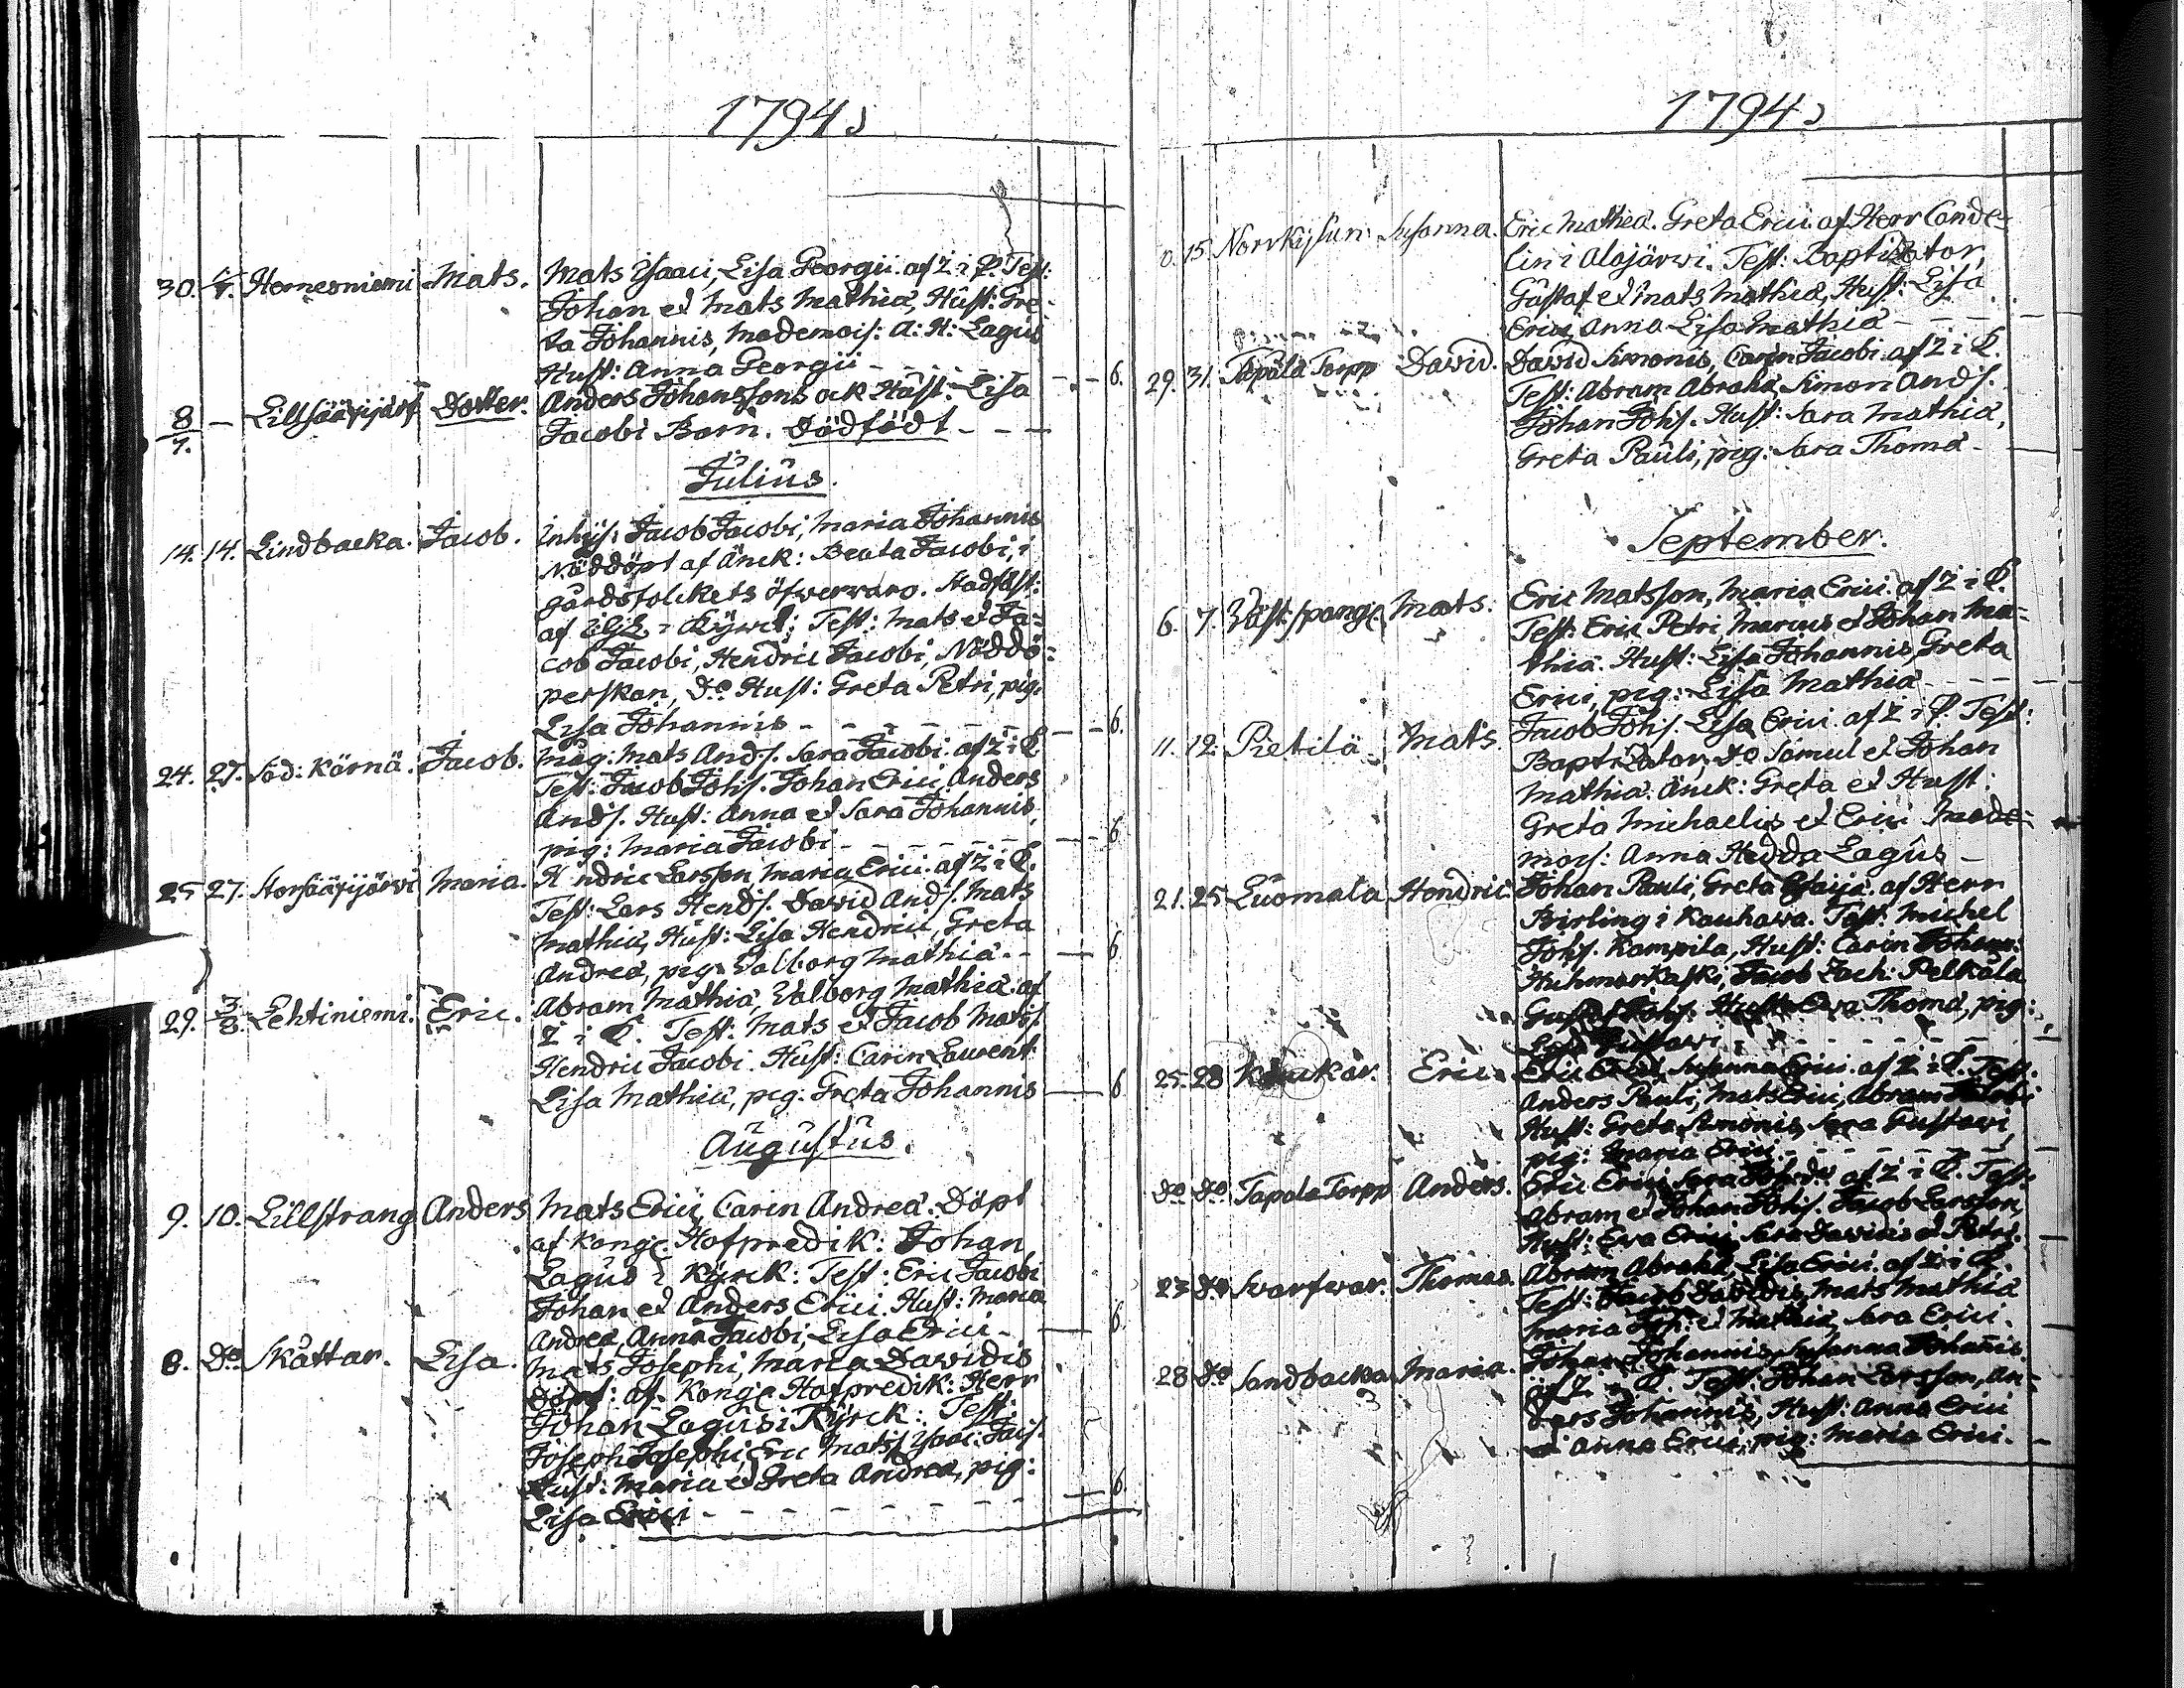 1794
30. Hernesniemi Mats. Mats Isaaci, Lisa Georgii. af Z i L. Test:
Johan et Mats Mathiæ, Hust: Gre-
ta Johannis, Mademois: A: H: Lagus
Hust: Anna Georgii - - - 6.
8/7. - Lillsääxjärf Dotter. Anders Johanssons ock Hust: Lisa
Jacobi Barn. Dödfödt - - -
Julius.
14. 14. Lindbacka. Jacob. Inhys: Jacob Jacobi, Maria Johannis
Nöddöpt af Änck: Beata Jacobi, i
gårdsfolckets öfwerwaro. Stadfäst:
af i Test: Mats et Ja-
cob Jacobi, Hendric Jacobi, Nöddö-
perskan, Do Hust: Greta Petri, pig:
Lisa Johannis - - - - - - 6.
24. 27. Söd: Kärnä. Jacob. Måg: Mats Ands. Sara Jacobi. af Z i L
Test: Jacob Johs. Johan Erici, Anders
Ands. Hust: Anna et Sara Johannis,
pig: Maria Jacobi - - - 6
25 27. Storsääxjärwi Maria. Hendric Larsson Maria Erici. af Z i L.
Test: Lars Hends. David Ands. Mats
Mathiæ, Hust: Lisa Hendrici, Greta
Andreæ, pig: Valborg Mathiæ. - - 6
29. 3/8. Lehtiniemi. Eric. Abram Mathiæ, Valborg Mathiæ af
Z i L. Test: Mats et Jacob Mats.
Hendric Jacobi. Hust: Carin Laurent:
Lisa Mathiæ, pig. Greta Johannis - 6
Augustus.
9. 10. Lillstrang Anders Mats Erici, Carin Andreæ. Döpt
af Kongl. Hofpredik: Johan
Lagus i Kyrck: Test: Eric Jacobi
Johan et Anders Erici. Hust: Maria
Andreæ, Anna Jacobi, Lisa Erici - 6.
8. Do Skåttar. Lisa. Mats Josephi, Maria Dawidis
Döpt: af Kongl. Hofpredik: Herr
Johan Lagus i Kyrck: Test:
Joseph Josephi, Eric Mats. Isaac
Hust: Maria et Greta Andreæ, pig:
Lisa Erici - - - - - - - - 6.
1794
15 Susanna. Eric Mathiæ. Greta Erici. af Herr Conde-
lin i Alajärwi. Test: Baptisator,
Gustaf et Mats Mathiæ, Hust: Lisa
Erici, Anna Lisa Mathiæ - - - -
29. 31. Tapala Torpp David. David Simonis, Carin Jacobi. af Z i L.
Test: Abram Abrahæ, Simon Ands.
Johan Johs. Hust: Sara Mathiæ,
Greta Pauli, pig: Sara Thomæ -
September.
6. 7. Wäst: spang. Mats. Eric Matsson, Maria Erici. af Z i L.
Test: Eric Petri Marcus et Johan Ma-
thiæ. Hust: Lisa Johannis, Greta
Erici, pig: Lisa Mathiæ - - - -
11. 12. Pietilä Mats. Jacob Johs. Lisa Erici. af Z i L. Test:
Baptisator, Do Samul et Johan
Mathiæ. Änck: Greta et Hust:
Greta Michaelis et Erici Made-
mois: Anna Hedda Lagus -
21. 25 Luomala Hendric Johan Pauli, Greta Esaiæ. af Herr
Birling i Kauhawa. Test: Michel
Johs. Kampila, Hust: Carin Johan:
Huhmarkåski, Jacob Zach: Pelkåla
Gustaf Johs. Hust: Ewa Thomæ, pig:
Lisa Gustawi - - - - - -
25. 28 Eric. Eric Susanna Erici. af Z i L. Test.
Anders Pauli, Mats Erici, Abram Jacobi
Hust: Greta Simonis, Sara Gustawi
pig: Maria Erici - - - - - -
Do Do Tapala Torpp Anders. Eric Erici Sara af Z i L. Test.
Abram et Johan Johs. Jacob Larsson,
Hust: Ewa Erici, Sara Dawidis et Petri. -
23 Do Svartwar. Thomas. Abram Abrahæ, Lisa Erici. af Z i L.
Test: Jacob Dawidis, Mats Mathiæ
Maria Joh: et Mathiæ, Sara Erici.
28 Do Sandbacka Maria. Johan Johannis, Susanna Johanis.
af Z i L. Test: Johan Larsson, An-
ders Johannis, Hust: Anna Erici
et Anna Erici, pig: Maria Erici. -